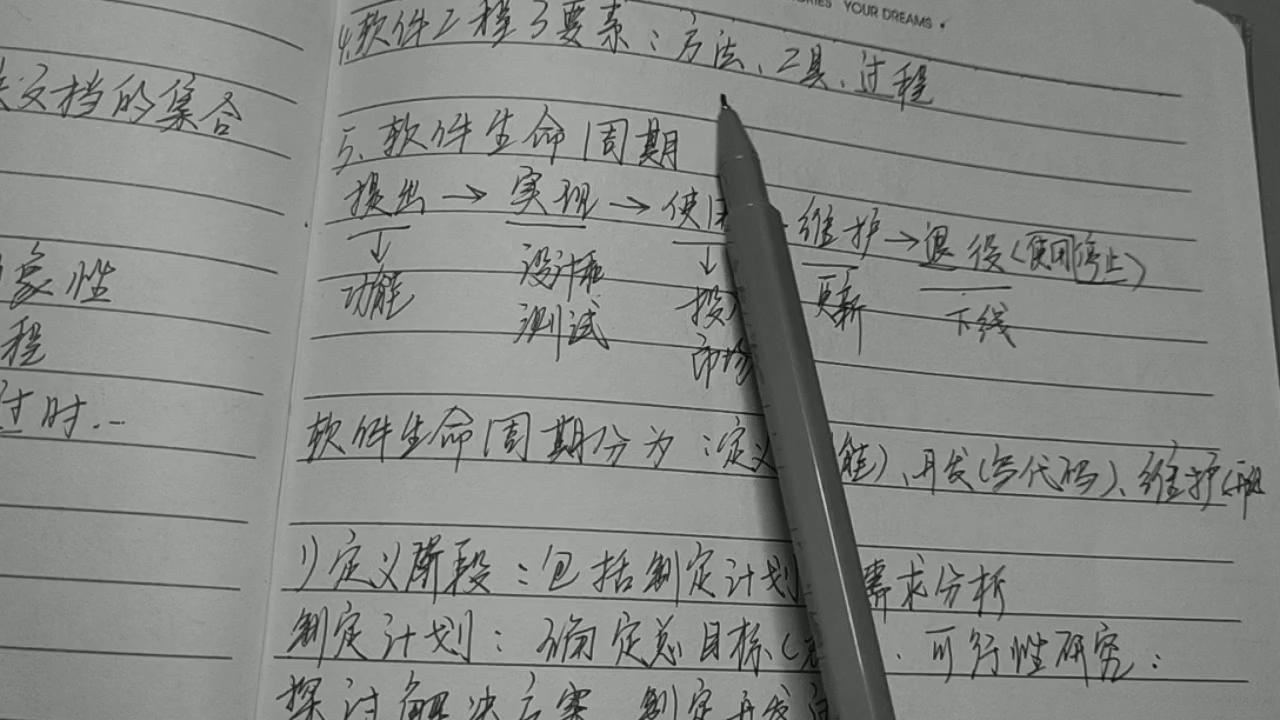 YOUR DREAMS
4.软件工程3要素：方法、工具、过程
文档的集合
5.软件生命周期
提出→实现→使用 维护→退役(使用停止)
↓ ↓
功能 设计和 投入 更新 下线
测试 市场
象性
程
过时...
软件生命周期分为：定义 能)、开发(写代码)、维护(
1)定义阶段：包括制定计划 需求分析
制定计划：确定总目标( 、可行性研究：
探讨解决方案 制定开发